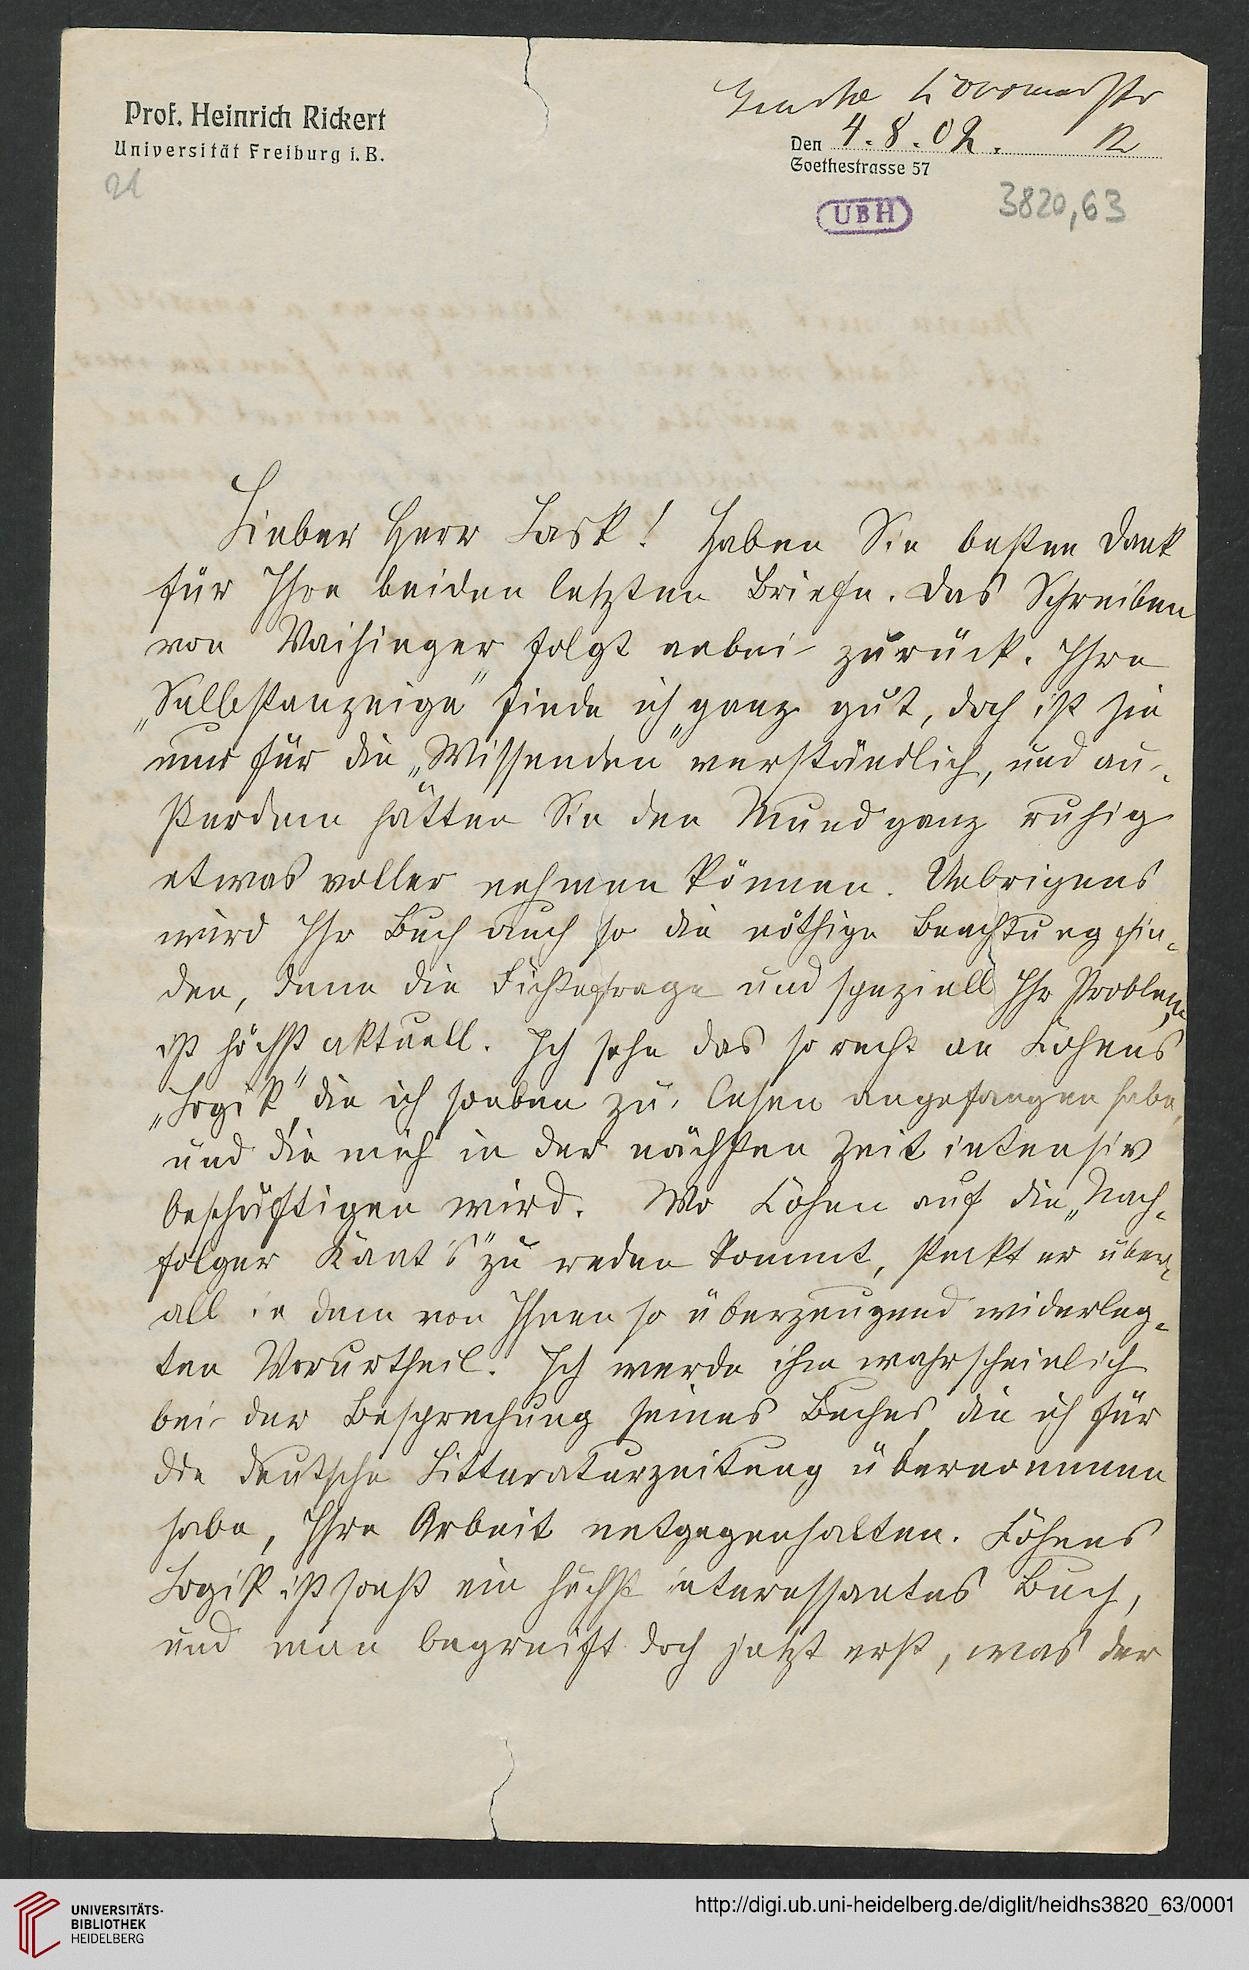 Prof. Heinrich Rickert
Universität Freiburg i. B.
Den 4. 8. 02. 12
Goethestrasse 57
21
UBH
3820,63
Lieber Herr Lask! Haben Sie besten Dank
für Ihre beiden letzten Briefe. Das Schreiben
von Vaihinger folgt anbei zurück. Ihre
„Selbstanzeige" finde ich ganz gut, doch ist sie
nur für die „Wissenden" verständlich, und au-
ßerdem hätten Sie den Mund ganz ruhig
etwas voller nehmen können. Uebrigens
wird Ihr Buch auch so die nöthige Beachtung fin-
den, denn die Fichtefrage und speziell Ihr Problem
ist höchst aktuell. Ich sehe das so recht an Cohens
„Logik", die ich soeben zu lesen angefangen habe,
und die mich in der nächsten Zeit intensiv
beschäftigen wird. Wo Cohen auf die „Nach-
folger Kants" zu reden kommt, steckt er über-
all in dem von Ihnen so überzeugend widerleg-
ten Vorurtheil. Ich werde ihm wahrscheinlich
bei der Besprechung seines Buches, die ich für
die deutsche Litteraturzeitung übernommen
habe, Ihre Arbeit entgegenhalten. Cohens
Logik ist sonst ein höchst interessantes Buch,
und man begreift doch jetzt erst, was der
UNIVERSITÄTS-
BIBLIOTHEK
HEIDELBERG
http://digi.ub.uni-heidelberg.de/diglit/heidhs3820_63/0001